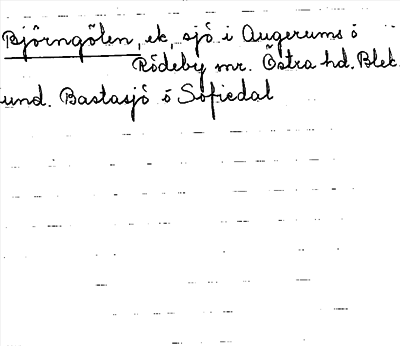 Björngölen, ek. sjö i Augerums o
Rödeby mr. Östra hd. Blek.
und. Bastasjö o Sofiedal